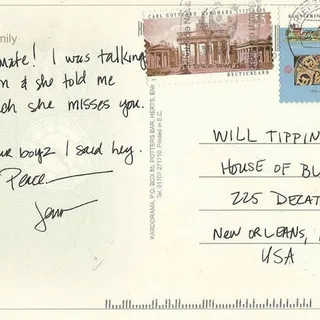 mily
mate! I was talking
n & she told me
h she misses you.
ur boyz I said hey.
Peace
CARL GOTTHARD LANGHANS
DEUTSCHLAND
KARDORAMA, P.O. BOX 85, POTTERS BAR, HERTS, EN6
Tel. 01707 271710. Printed in E.C.
WILL TIPPIN
HOUSE OF BL
225 DECAT
NEW ORLEANS,
USA